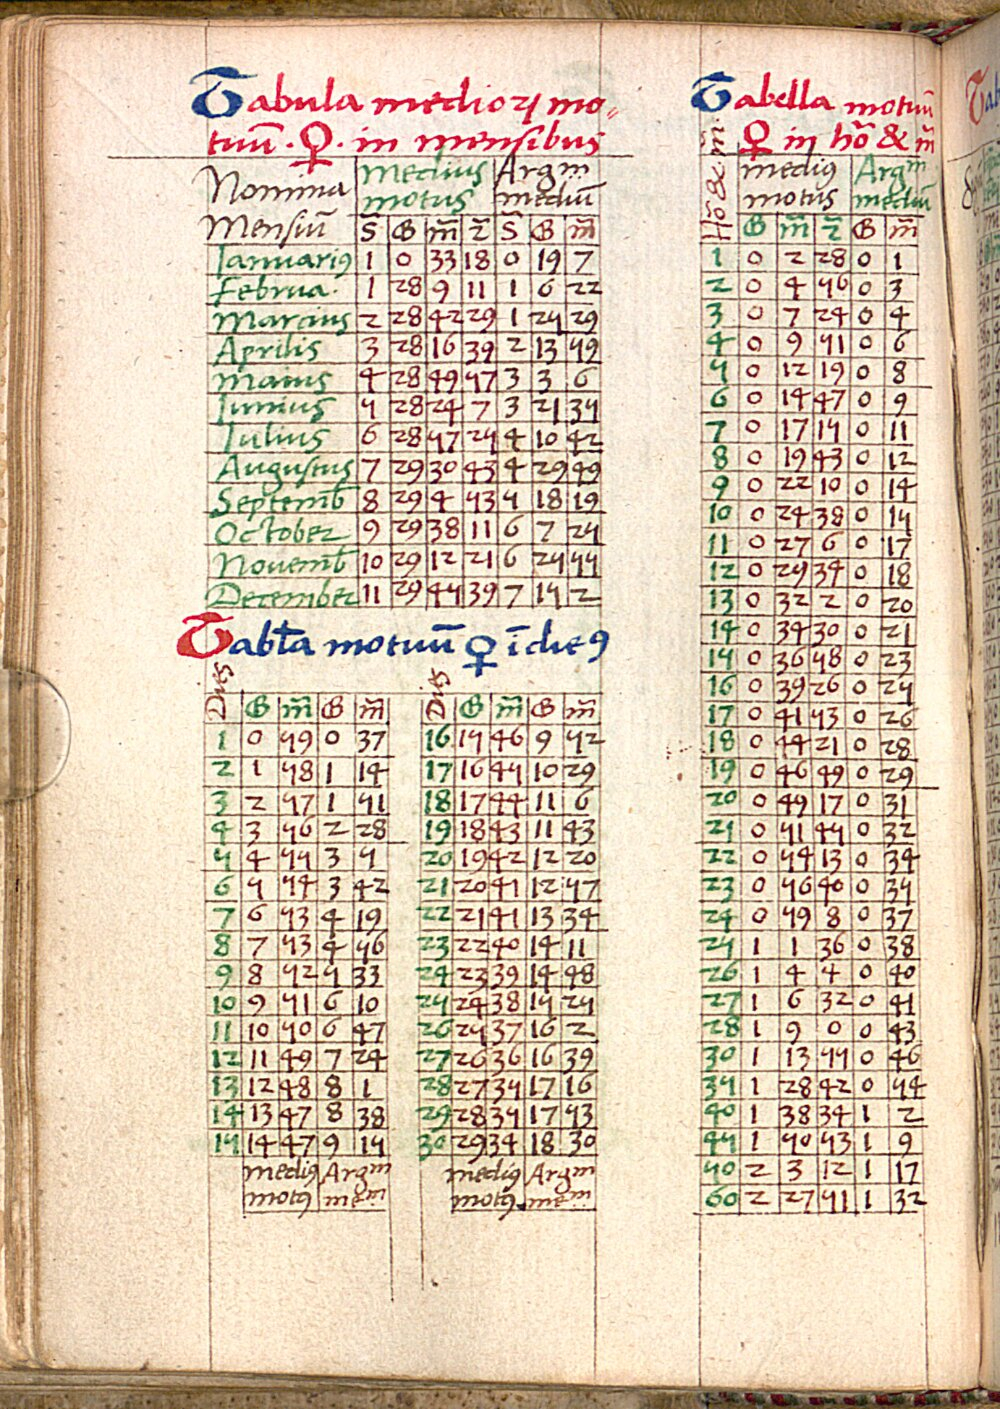 Tabula medioꝝ mo=
tuū . ♀ . in mensibus
Nomina Medius motus Argm mediū
Mensiū s̄ G m̄ z̄ s̄ G m̄
Ianuariꝰ 1 0 33 18 0 19 7
Februa. 1 28 9 11 1 6 22
Marcius 2 28 42 29 1 25 29
Aprilis 3 28 16 39 2 13 59
Maius 4 28 49 57 3 3 6
Iunius 5 28 24 7 3 21 35
Iulius 6 28 57 25 4 10 42
Augustus 7 29 30 43 4 29 49
Septemb̄ 8 29 4 53 5 18 19
October 9 29 38 11 6 7 25
Novemb̄ 10 29 12 21 6 25 55
December 11 29 45 39 7 15 2
Tabl̄a motuū ♀ ī dieꝰ
Dies G m̄ G m̄
1 0 59 0 37
2 1 58 1 14
3 2 57 1 51
4 3 56 2 28
5 4 55 3 5
6 5 54 3 42
7 6 53 4 19
8 7 53 4 56
9 8 52 5 33
10 9 51 6 10
11 10 50 6 47
12 11 49 7 24
13 12 48 8 1
14 13 47 8 38
15 14 47 9 15
mediꝰ Argm
motꝰ mem
Dies G m̄ G m̄
16 15 46 9 52
17 16 45 10 29
18 17 44 11 6
19 18 43 11 43
20 19 42 12 20
21 20 41 12 57
22 21 41 13 34
23 22 40 14 11
24 23 39 14 48
25 24 38 15 25
26 25 37 16 2
27 26 36 16 39
28 27 35 17 16
29 28 35 17 53
30 29 34 18 30
mediꝰ Argm
motꝰ mem
Tabella motuū
♀ in hō & m̄
Hō & m̄ mediꝰ motus Argm mediū
G m̄ z̄ G m̄
1 0 2 28 0 1
2 0 4 56 0 3
3 0 7 24 0 4
4 0 9 51 0 6
5 0 12 19 0 8
6 0 14 47 0 9
7 0 17 15 0 11
8 0 19 43 0 12
9 0 22 10 0 14
10 0 24 38 0 15
11 0 27 6 0 17
12 0 29 34 0 18
13 0 32 2 0 20
14 0 34 30 0 21
15 0 36 58 0 23
16 0 39 26 0 25
17 0 41 53 0 26
18 0 44 21 0 28
19 0 46 49 0 29
20 0 49 17 0 31
21 0 51 45 0 32
22 0 54 13 0 34
23 0 56 40 0 35
24 0 59 8 0 37
25 1 1 36 0 38
26 1 4 4 0 40
27 1 6 32 0 41
28 1 9 0 0 43
30 1 13 55 0 46
35 1 28 42 0 54
40 1 38 34 1 2
45 1 50 53 1 9
50 2 3 12 1 17
60 2 27 51 1 32